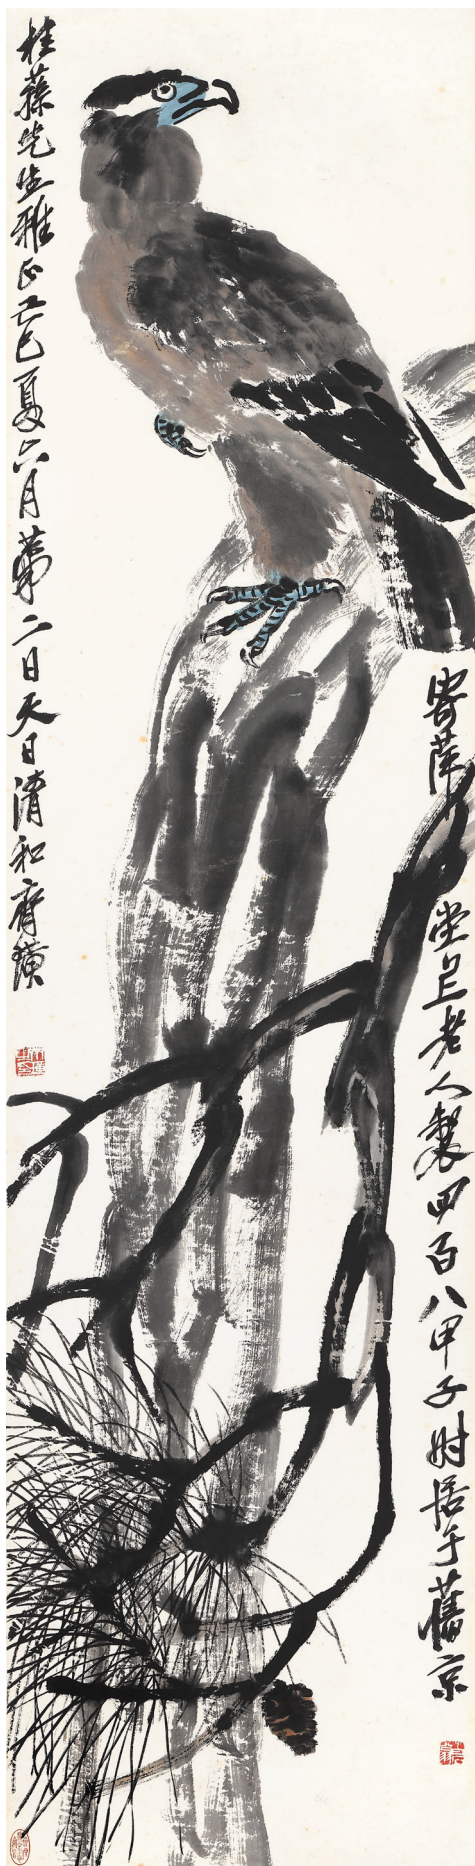 寄萍堂上老人製四百八甲子時居于舊京
桂蓀先生雅正己巳夏六月第二日天日清和齊璜